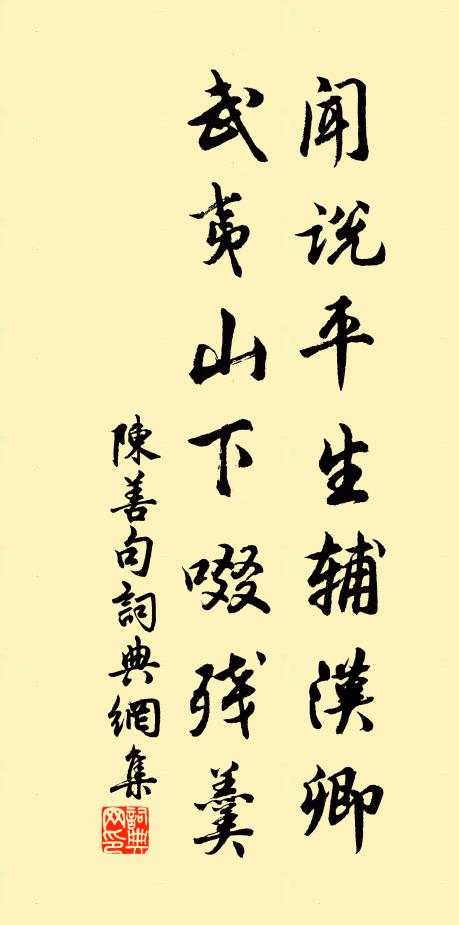 闻说平生辅汉卿
武夷山下啜残羹
陳善句詞典網集
詞典网印